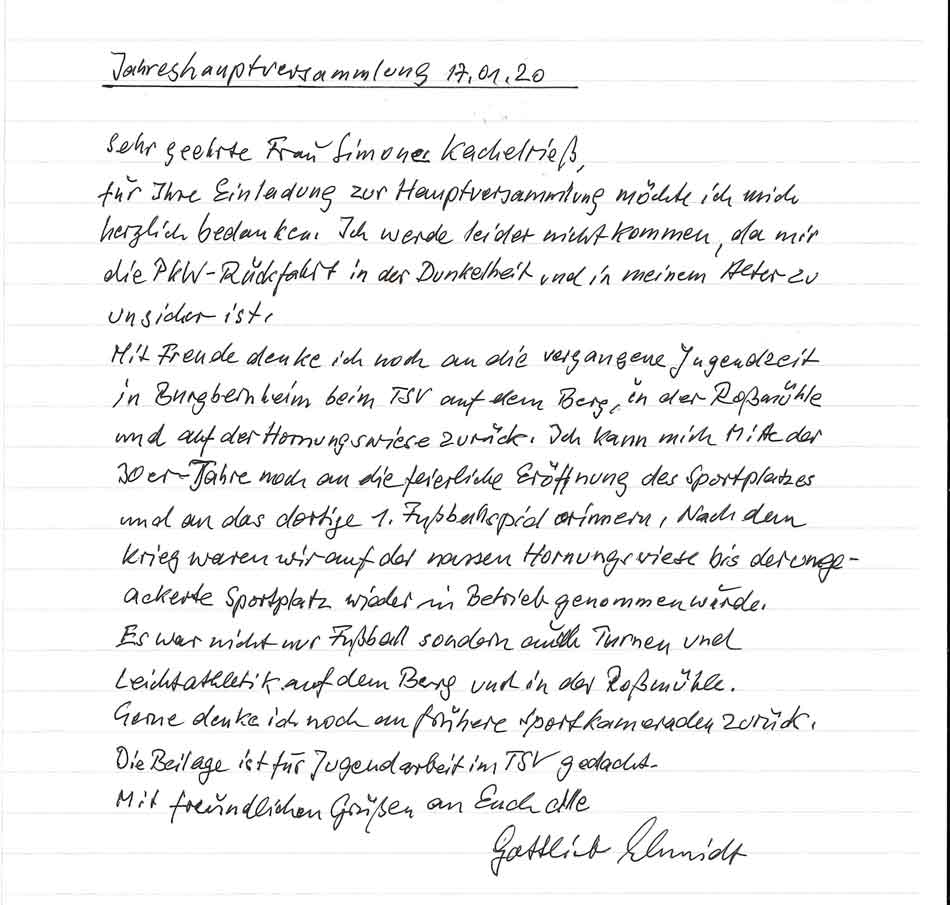 Jahreshauptversammlung 17.01.20
Sehr geehrte Frau Simone Kachelrieß,
für Ihre Einladung zur Hauptversammlung möchte ich mich
herzlich bedanken. Ich werde leider nicht kommen, da mir
die PkW-Rückfahrt in der Dunkelheit und in meinem Alter zu
unsicher ist.
Mit Freude denke ich noch an die vergangene Jugendzeit
in Burgbernheim beim TSV auf dem Berg, in der Roßmühle
und auf der Hornungswiese zurück. Ich kann mich Mitte der
30er-Jahre noch an die feierliche Eröffnung des Sportplatzes
und an das dortige 1. Fußballspiel erinnern. Nach dem
Krieg waren wir auf der nassen Hornungswiese bis der umge-
ackerte Sportplatz wieder in Betrieb genommen wurde.
Es war nicht nur Fußball sondern auch Turnen und
Leichtathletik auf dem Berg und in der Roßmühle.
Gerne denke ich noch an frühere Sportkameraden zurück.
Die Beilage ist für Jugendarbeit im TSV gedacht.
Mit freundlichen Grüßen an Euch alle
Gottlieb Schmidt